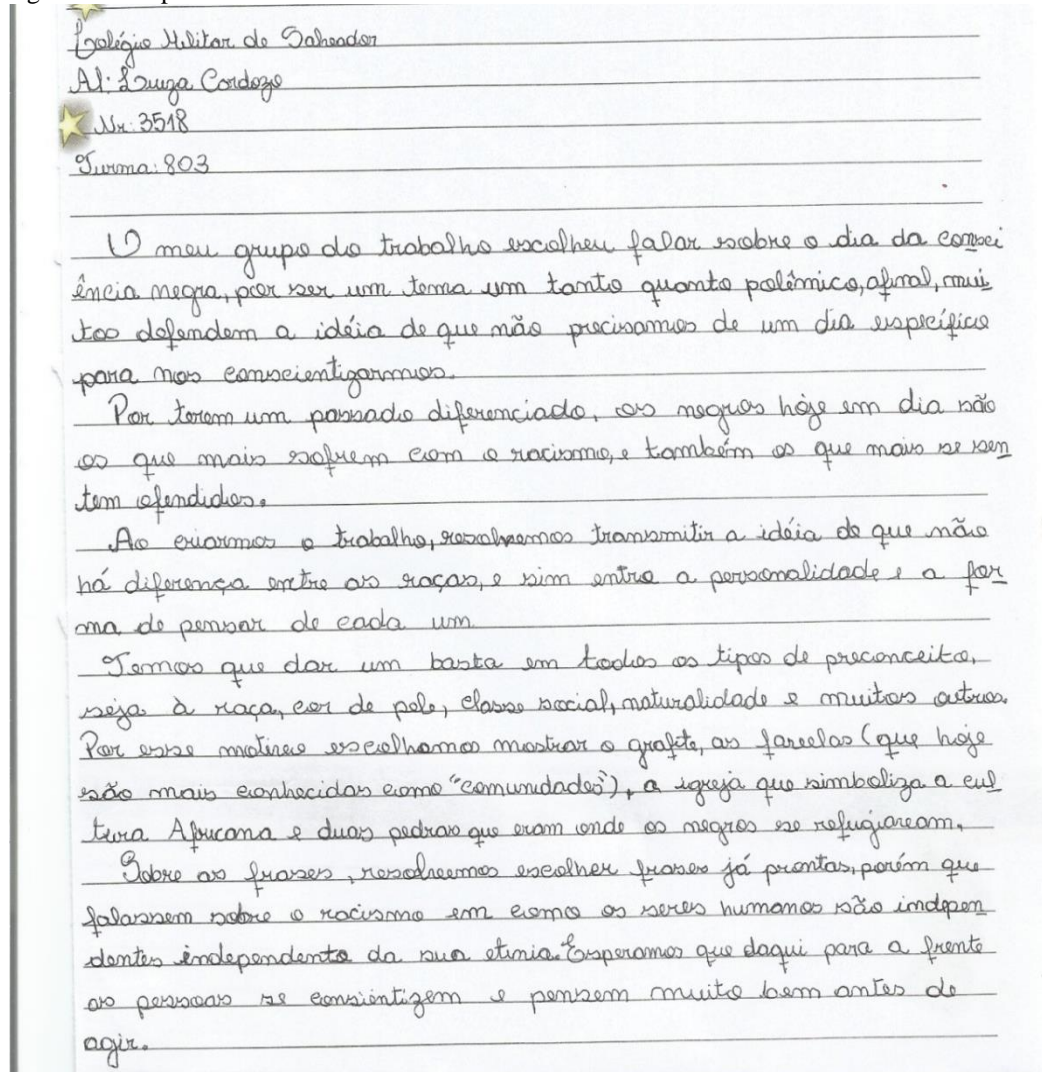 Colégio Militar de Salvador
Al: Luiza Cardozo
Nr: 3518
Turma: 803
O meu grupo do trabalho escolheu falar sobre o dia da consci
ência negra, por ser um tema um tanto quanto polêmico, afinal, mui
tos defendem a idéia de que não precisamos de um dia específico
para nos conscientizarmos.
Por terem um passado diferenciado, os negros hoje em dia são
os que mais sofrem com o racismo, e também os que mais se sen
tem ofendidos.
Ao criarmos o trabalho, resolvemos transmitir a idéia de que não
há diferença entre as raças, e sim entre a personalidade e a for
ma de pensar de cada um
Temos que dar um basta em todos os tipos de preconceito,
seja à raça, cor de pele, classe social, naturalidade e muitos outros.
Por esse motivo escolhemos mostrar o grafite, as favelas (que hoje
são mais conhecidas como "comundades"), a igreja que simboliza a cul
tura Africana e duas pedras que eram onde os negros se refugiavam.
Sobre as frases, resolvemos escolher frases já prontas, porém que
falassem sobre o racismo em como os seres humanos são indepen
dentes independente da sua etinia. Esperamos que daqui para a frente
as pessoas se consientizem e pensem muito bem antes de
agir.